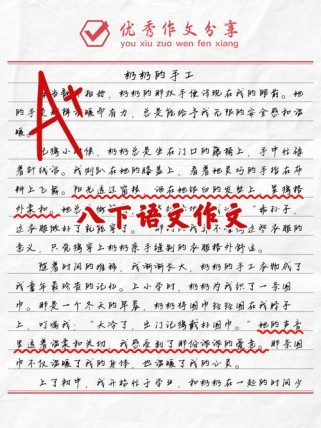 优秀作文分享
you xiu zuo wen fen xiang
奶奶的手工
相拾，奶奶的那双手便浮现在我的眼前。她
的手是那样温暖而有力，总是能给予我无限的安全感和温
暖。
小时候，奶奶总坐在门口的藤椅上，手中忙碌
着针线活。我则趴在她的膝盖上，看着她灵巧的手指在布
料上飞舞。阳光透过窗棂，洒在她银白的发丝上，显得格
外柔和。她总
八下语文作文
意义，只觉得穿上奶奶亲手缝制的衣服格外舒适。
随着时间的推移，我渐渐长大，奶奶的手工衣物成了
我童年最珍贵的记忆。上小学时，奶奶为我织了一条围
巾。那是一个冬天的早晨，奶奶将围巾轻轻围在我脖子
上，叮嘱我：“天冷了，出门记得戴好围巾。”她的声音
里透着温柔和关切，我感受到了那份深深的爱意。那条围
巾不仅温暖了我的身体，也温暖了我的心灵。
上了初中，我开始忙于学业，和奶奶在一起的时间少